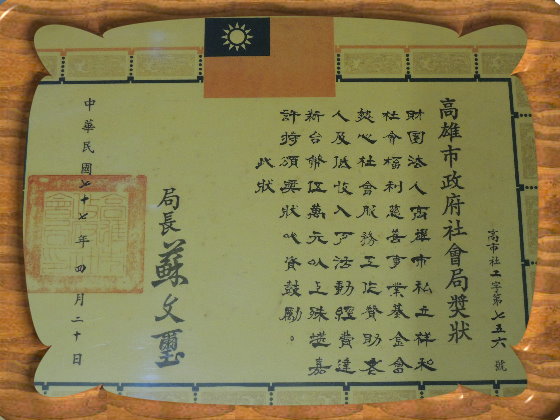 高雄市政府社會局獎狀
高市社工字第七五六號
財團法人高雄市私立祥和
社會福利慈善事業基金會
熱心社會服務工作贊助老
人及低收入戶活動經費達
新台幣伍萬元以上殊堪嘉
許特頒獎狀以資鼓勵。
此狀
局長蘇文璽
中華民國七十七年四月二十日